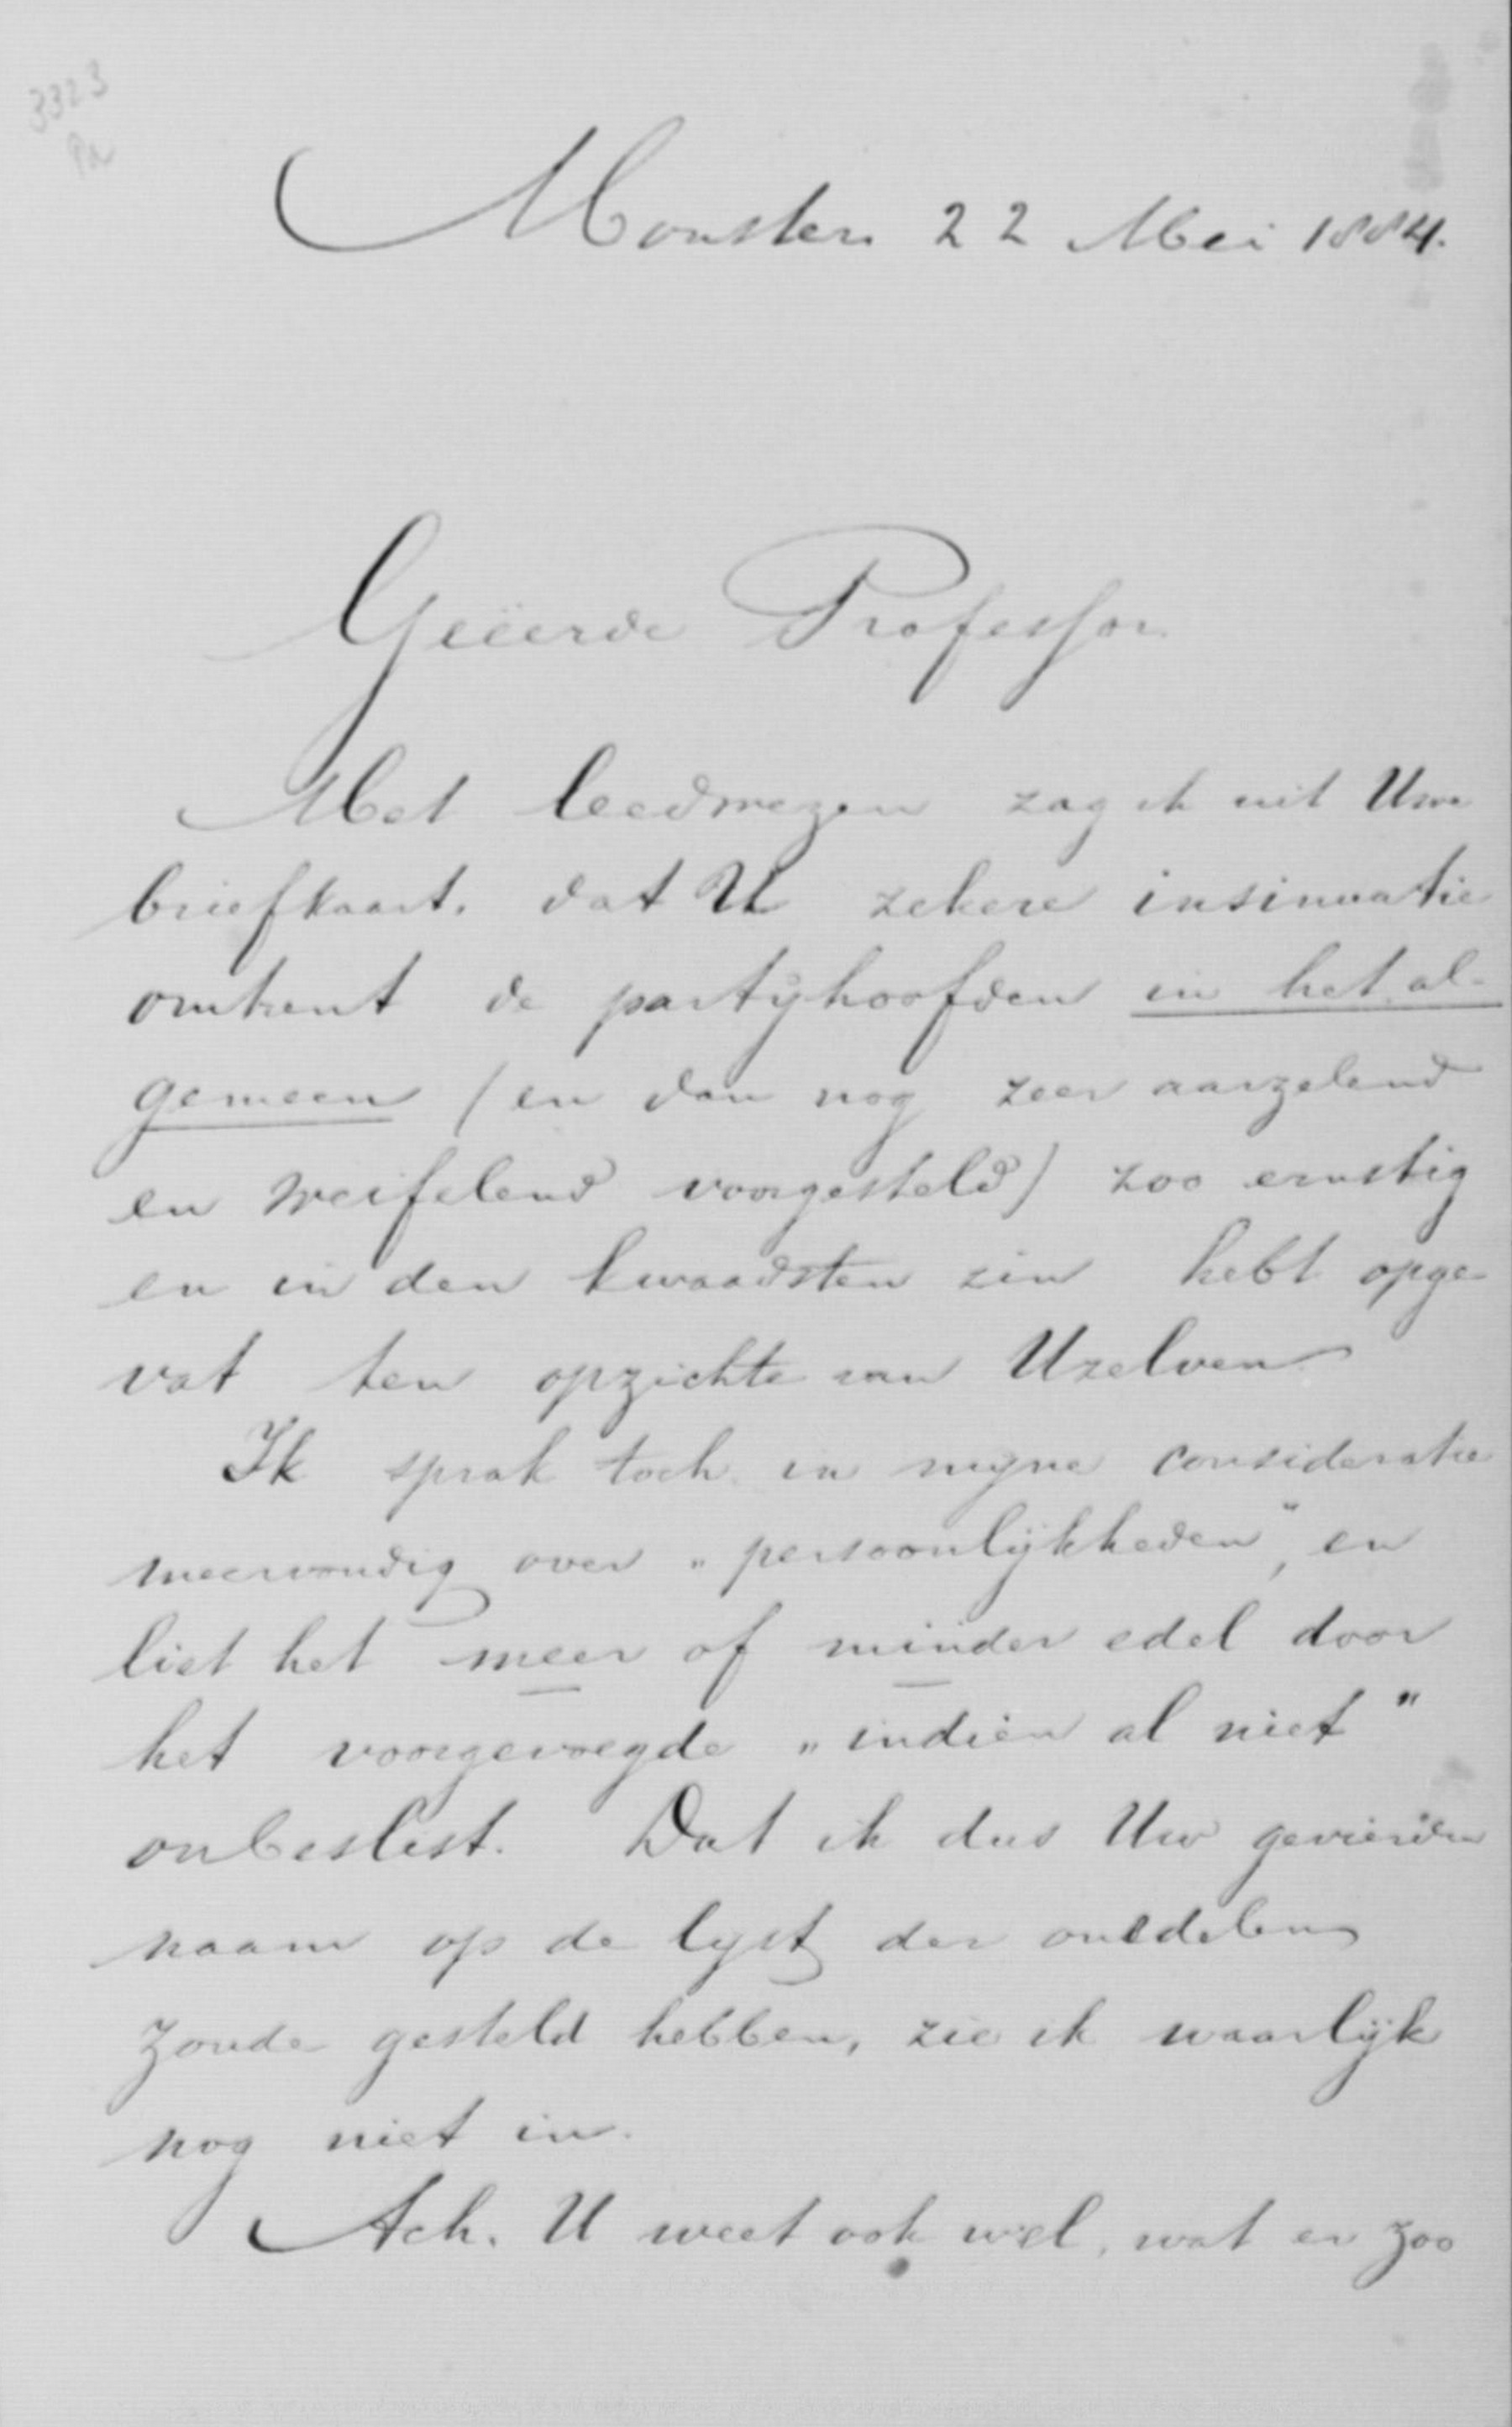 3323
Pa
Monster 22 Mei 1884.
Geëerde Professor
Met leedwezen zag ik uit Uwe
briefkaart, dat U zekere insinuatie
omtrent de partijhoofden in het al-
gemeen (en dan nog zeer aarzelend
en weifelend voorgesteld) zoo ernstig
en in den kwaadsten zin hebt opge-
vat ten opzichte van Uzelven
Ik sprak toch in mijne consideratie
meervoudig over „persoonlijkheden", en
liet het meer of minder edel door
het voorgevoegde „indien al niet"
onbeslist. Dat ik dus Uw gevierden
naam op de lijst der onedelen
zoude gesteld hebben, zie ik waarlijk
nog niet in.
Ach. U weet ook wel, wat er zoo